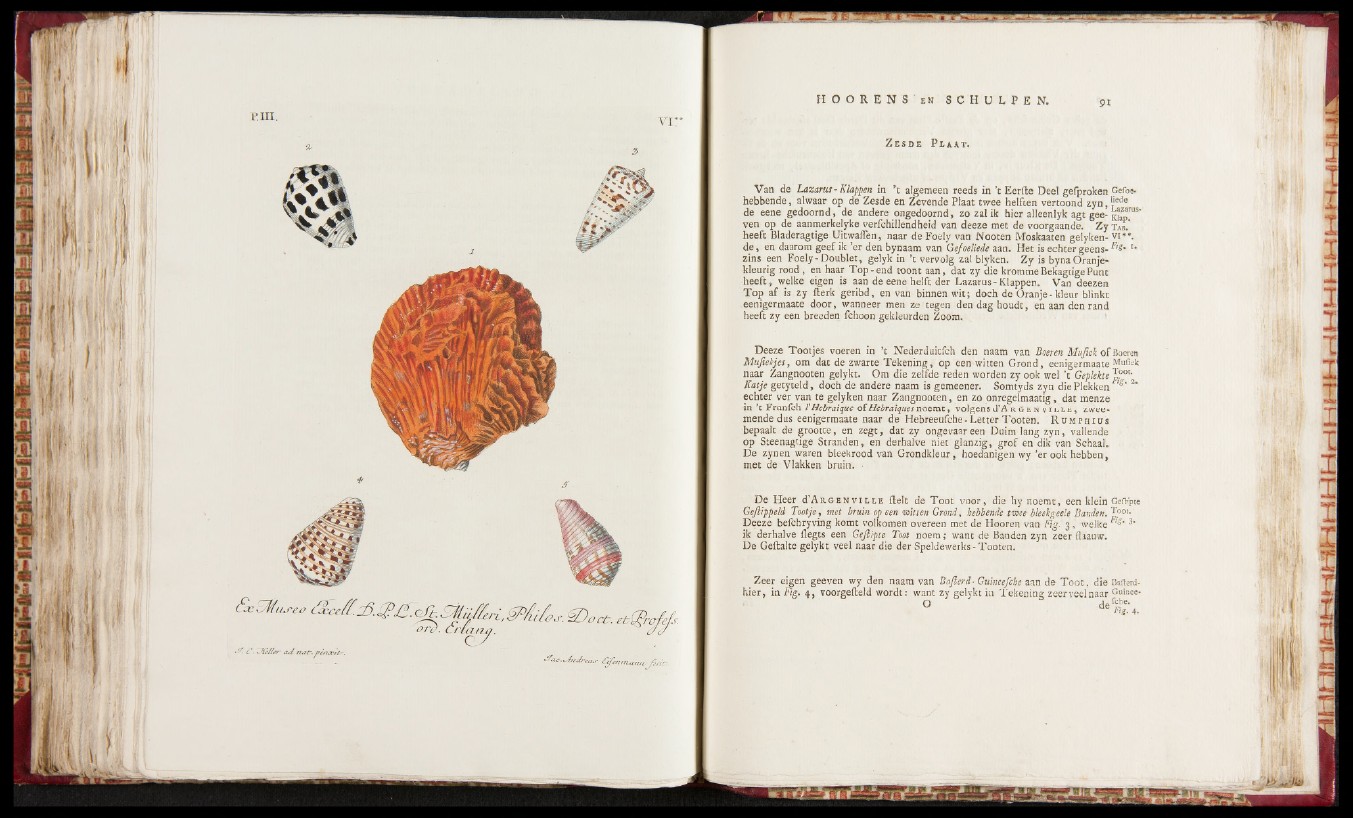 P.III.
VI.**
2
3
1
4
5
Ex Museo Excell. D. P. L. St. Mülleri, Philos. Doct. et Profess.
ord. Erlang.
J. C. Keller ad nat. pinxit.
Jac. Andreas Eisenmann sculp.
HOORENS EN SCHULPEN. 91
ZESDE PLAAT.
Van de Lazarus-Klappen in 't algemeen reeds in 't Eerſte Deel geſproken
hebbende, alwaar op de Zesde en Zevende Plaat twee helften vertoond zyn,
de eene gedoornd, de andere ongedoornd, zo zal ik hier alleenlyk agt gee-
ven op de aanmerkelyke verſchillendheid van deeze met de voorgaande. Zy
heeft Bladeragtige Uitwaſſen, naar de Foely van Nooten Moskaaten gelyken-
de, en daarom geef ik 'er den bynaam van Gefoeliede aan. Het is echter geens-
zins een Foely-Doublet, gelyk in 't vervolg zal blyken. Zy is byna Oranje-
kleurig rood, en haar Top-end toont aan, dat zy die kromme Bekagtige Punt
heeft, welke eigen is aan de eene helft der Lazarus-Klappen. Van deezen
Top af is zy ſterk geribd, en van binnen wit; doch de Oranje-kleur blinkt
eenigermaate door, wanneer men ze tegen den dag houdt, en aan den rand
heeft zy een breeden ſchoon gekleurden Zoom.
Gefoe-
liede
Lazarus-
Klap.
TAB.
VI**.
Fig. 1.
Deeze Tootjes voeren in 't Nederduitſch den naam van Boeren Muſiek of
Muſiekjes, om dat de zwarte Tekening, op een witten Grond, eenigermaate
naar Zangnooten gelykt. Om die zelfde reden worden zy ook wel 't Geplekte
Katje getyteld, doch de andere naam is gemeener. Somtyds zyn die Plekken
echter ver van te gelyken naar Zangnooten, en zo onregelmaatig, dat menze
in 't Franſch l'Hebraique of Hebraiques noemt, volgens d'ARGENVILLE, zwee-
mende dus eenigermaate naar de Hebreeuſche-Letter Tooten. RUMPHIUS
bepaalt de grootte, en zegt, dat zy ongevaar een Duim lang zyn, vallende
op Steenagtige Stranden, en derhalve niet glanzig, grof en dik van Schaal.
De zynen waren bleekrood van Grondkleur, hoedanigen wy 'er ook hebben,
met de Vlakken bruin.
Boeren
Muſiek
Toot.
Fig. 2.
De Heer d'ARGENVILLE ſtelt de Toot voor, die hy noemt, een klein
Geſtippeld Tootje, met bruin op een witten Grond, hebbende twee bleekgeele Banden.
Deeze beſchryving komt volkomen overeen met de Hooren van Fig. 3, welke
ik derhalve ſlegts een Geſtipte Toot noem; want de Banden zyn zeer flaauw.
De Geſtalte gelykt veel naar die der Speldewerks-Tooten.
Geſtipte
Toot.
Fig. 3.
Zeer eigen geeven wy den naam van Baſterd-Guineeſche aan de Toot, die
hier, in Fig. 4, voorgeſteld wordt: want zy gelykt in Tekening zeer veel naar
O de
Baſterd-
Guinee-
ſche.
Fig. 4.